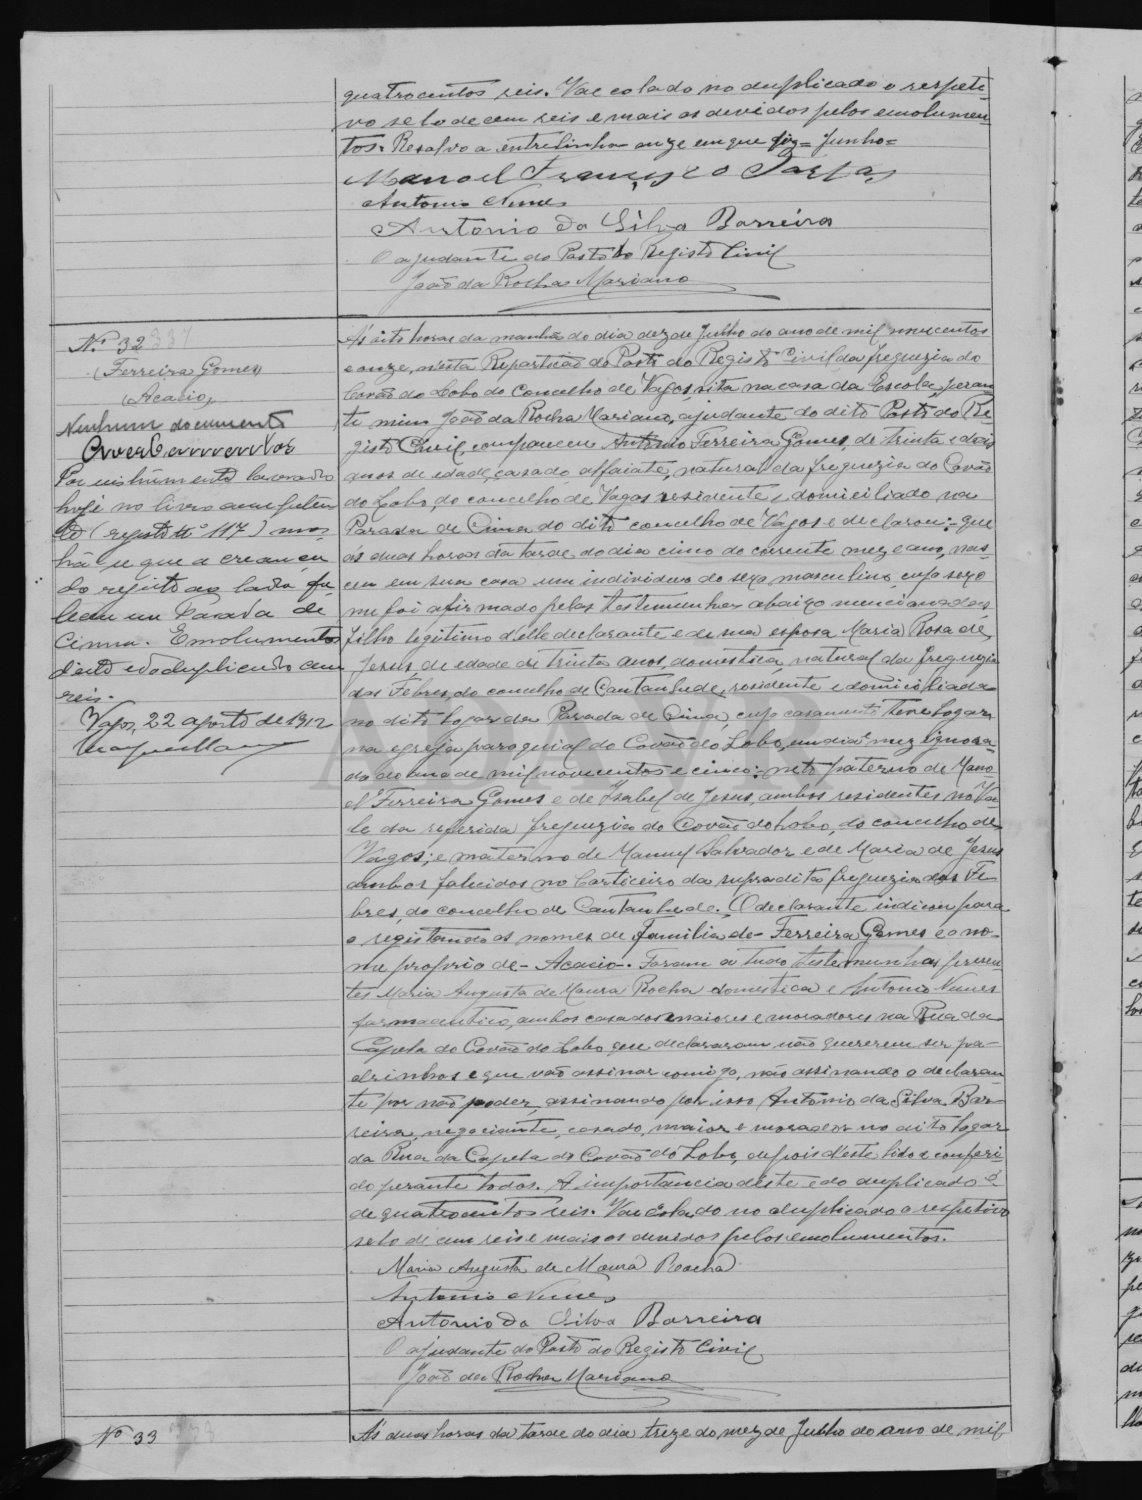 quatrocentos reis. Vae colado no duplicado o respeti-
vo selo de cem reis e mais os devidos pelos emolumen-
tos. Resalvo a entrelinha onze em que fiz = junho =
Manoel Francisco
Antonio Nunes
Antonio da Silva Barreira
O ajudante do Posto do Registo Civil
João da Rocha Mariano
N.º 32 337
(Ferreira Gomes)
(Acacio)
Nenhum documento
Por instrumento lavrado
hoje no livro
to (registo nº 117)
que a creança
do registo ao lado fa-
leceu em Parada de
Cima. Emolumento
deste e do duplicado cem
reis.
Vagos, 22 agosto de 1912
A's oito horas da manhã do dia dez de Julho do ano de mil novecentos
e onze, n'esta Repartição do Posto do Registo Civil da freguezia do
Covão do Lobo do Concelho de Vagos, sita na casa da Escola, peran-
te mim João da Rocha Mariano, ajudante do dito Posto do Re-
gisto Civil, compareceu Antonio Ferreira Gomes, de trinta e dois
anos de edade, casado, alfaiate, natural da freguezia do Covão
do Lobo, do concelho de Vagos residente e domiciliado na
Parada de Cima do dito concelho de Vagos e declarou: - que
ás duas horas da tarde do dia cinco do corrente mez e ano, nas-
ceu em sua casa um individuo do sexo masculino, cujo sexo
me foi afirmado pelas testemunhas abaixo mencionadas,
filho legitimo d'elle declarante e de sua esposa Maria Rosa de
Jesus, de edade de trinta anos, domestica, natural da freguezia
das Febres, do concelho de Cantanhede, residente e domiciliada
no dito logar da Parada de Cima, cujo casamento teve logar
na egreja paroquial do Covão do Lobo, em dia e mez ignora-
do do ano de mil novecentos e cinco: - neto paterno de Mano-
el Ferreira Gomes e de Isabel de Jesus, ambos residentes no Va-
le da referida freguezia do Covão do Lobo, do concelho de
Vagos; e materno de Manuel Salvador e de Maria de Jesus
ambos falecidos no Corticeiro da supradita freguezia das Fe-
bres, do concelho de Cantanhede. O declarante indicou para
o registando os nomes de familia de - Ferreira Gomes e o no-
me proprio de - Acacio -. Foram a tudo testemunhas presen-
tes Maria Augusta de Moura Rocha domestica e Antonio Nunes
farmaceutico, ambos casados maiores e moradores na Rua da
Capela do Covão do Lobo que declararam não quererem ser pa-
drinhos e que vão assinar comigo, não assinando o declaran-
te por não poder, assinando por isso Antonio da Silva Bar-
reira, negociante, casado, maior e morador no dito logar
da Rua da Capela do Covão do Lobo, depois d'este lido e conferi-
do perante todos. A importancia deste e do duplicado é
de quatrocentos reis. Vae colado no duplicado o respetivo
selo de cem reis e mais os devidos pelos emolumentos.
Maria Augusta de Moura Rocha
Antonio Nunes
Antonio da Silva Barreira
O ajudante do Posto do Registo Civil
João da Rocha Mariano
Nº 33 338
A's duas horas da tarde do dia treze do mez de Julho do ano de mil